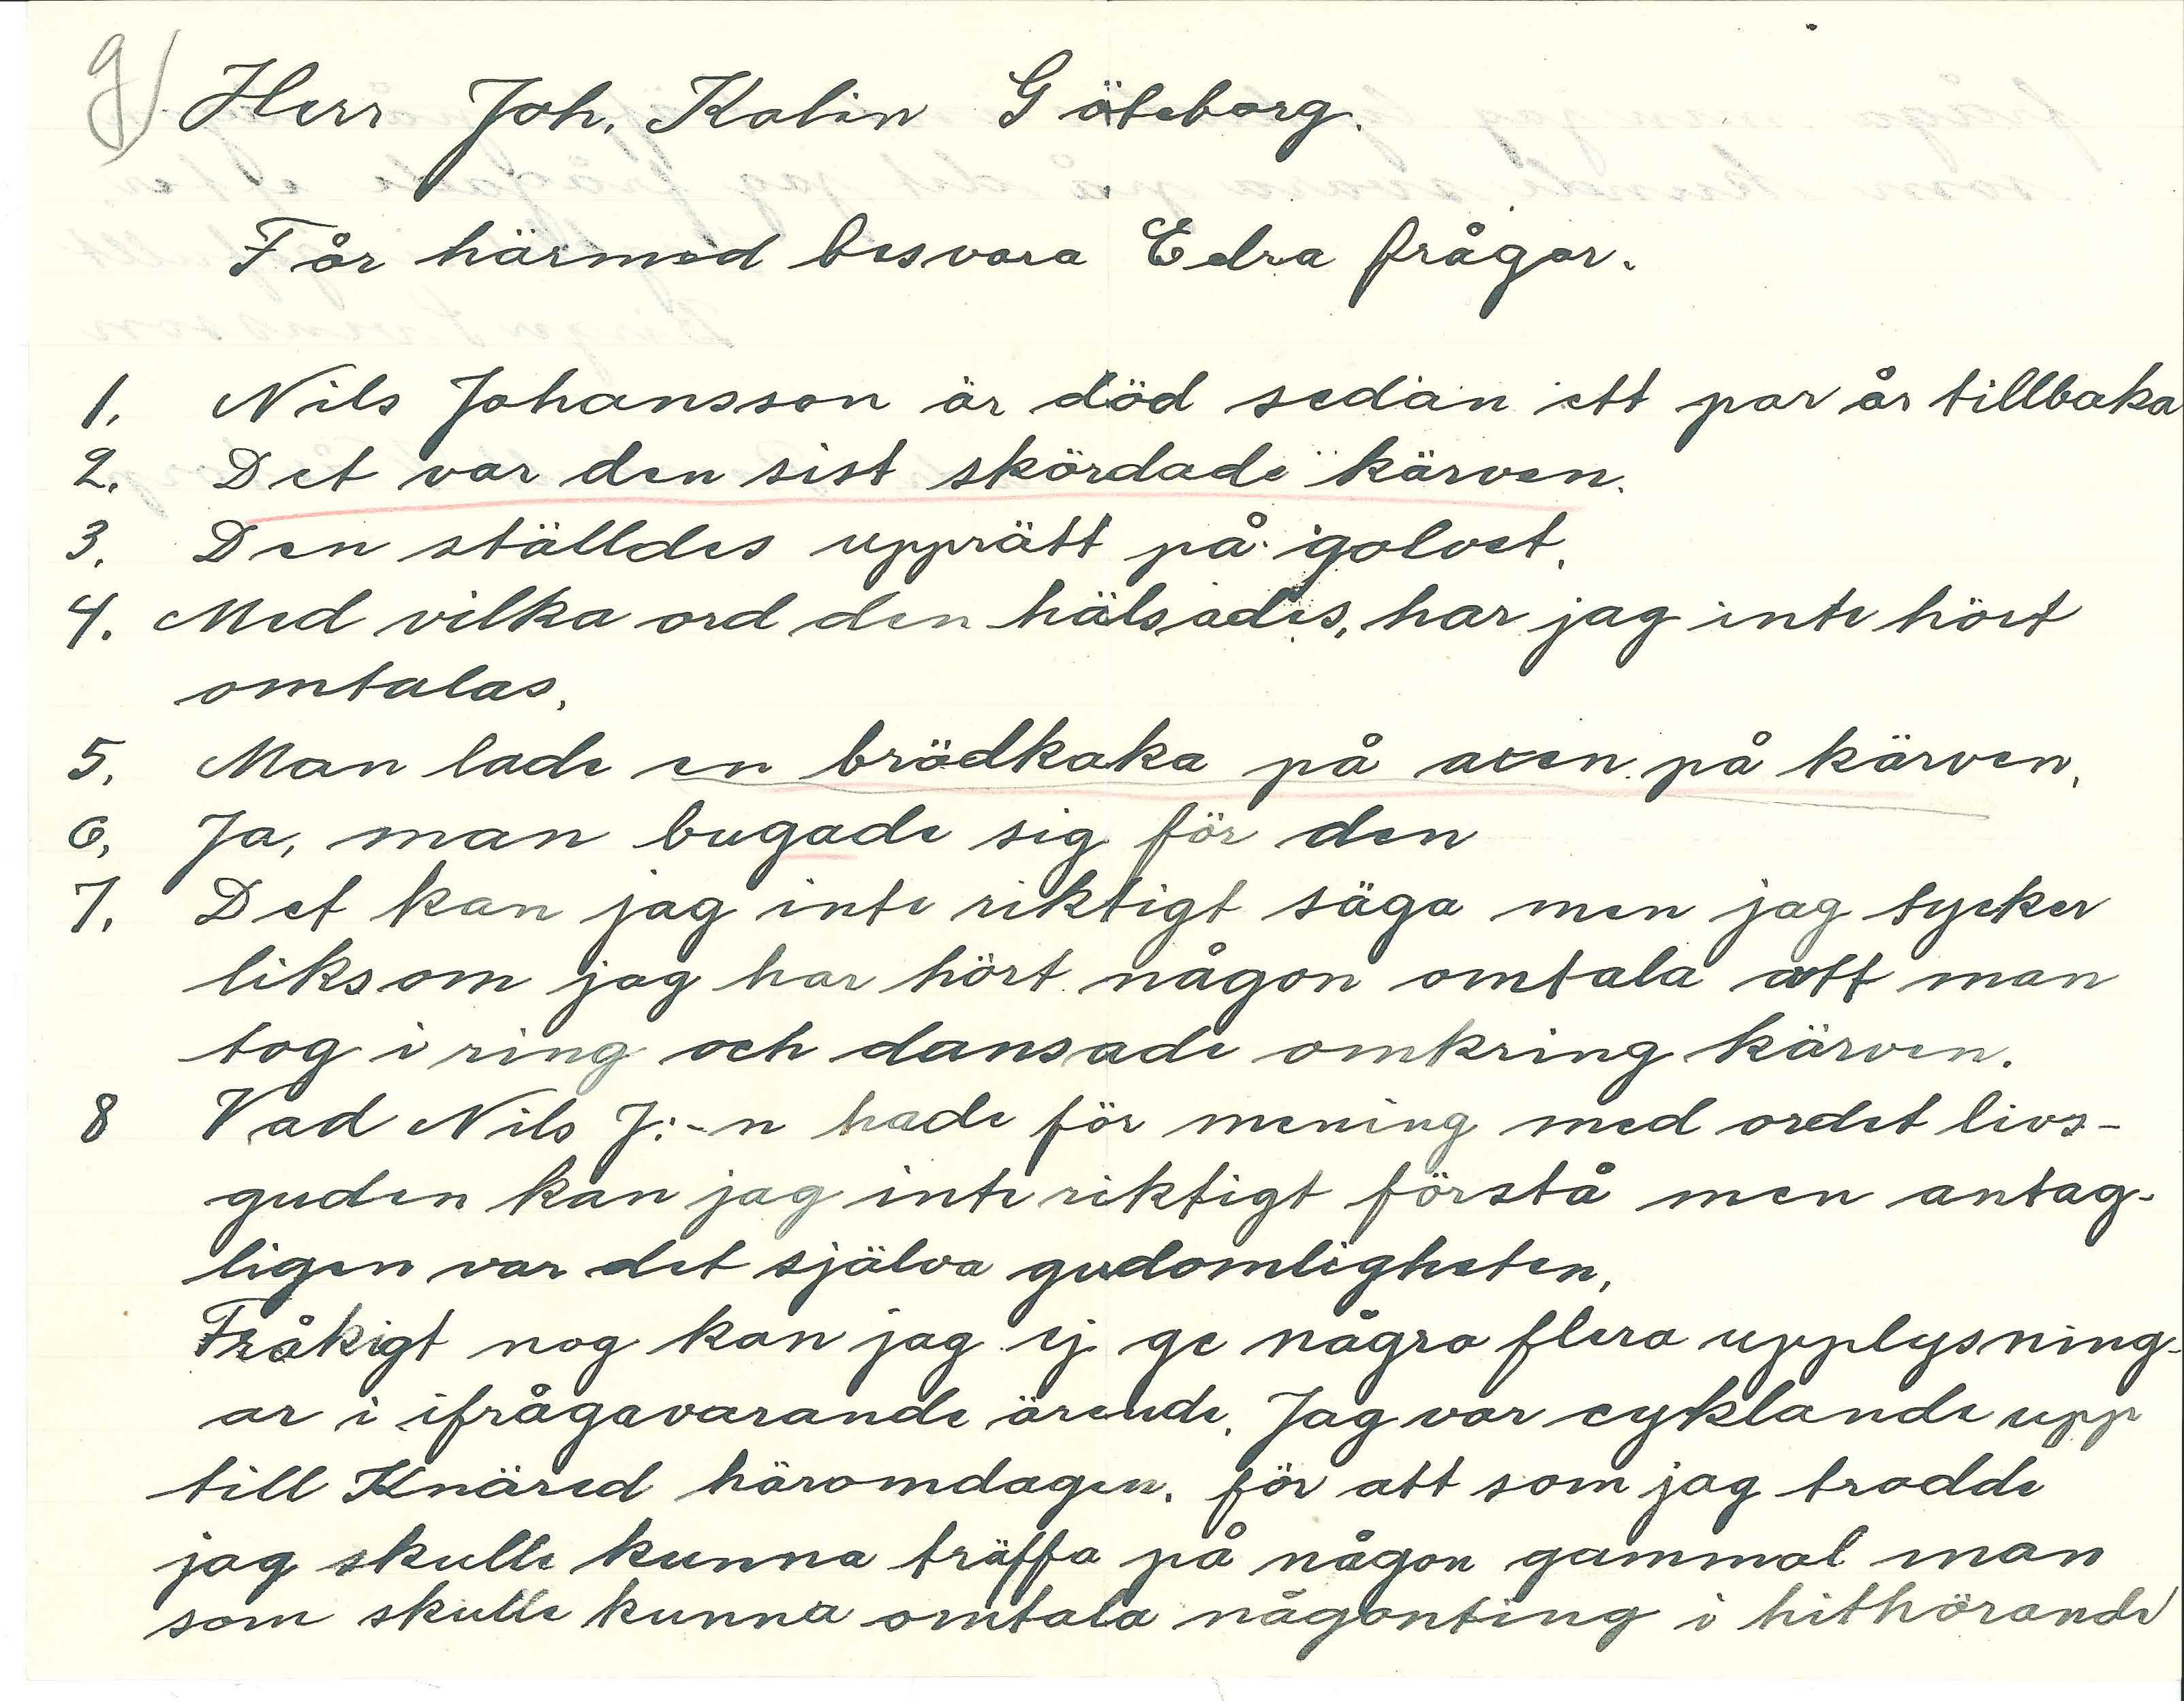 g)
Herr Joh. Kalin Göteborg.
Får härmed besvara Edra frågor.
1. Nils Johansson är död sedan ett par år tillbaka
2. Det var den sist skördade kärven.
3. Den ställdes upprätt på golvet.
4. Med vilka ord den hälsades, har jag inte hört
omtalas.
5. Man lade en brödkaka på axen på kärven.
6. Ja, man bugade sig för den
7. Det kan jag inte riktigt säga men jag tycker
liksom jag har hört någon omtala att man
tog i ring och dansade omkring kärven.
8 Vad Nils J:-n hade för mening med ordet livs-
guden kan jag inte riktigt förstå men antag-
ligen var det själva gudomligheten.
Tråkigt nog kan jag ej ge några flera upplysning-
ar i ifrågavarande ärende. Jag var cyklande upp
till Knäred häromdagen. för att som jag trodde
jag skulle kunna träffa på någon gammal man
som skulle kunna omtala någonting i hithörande